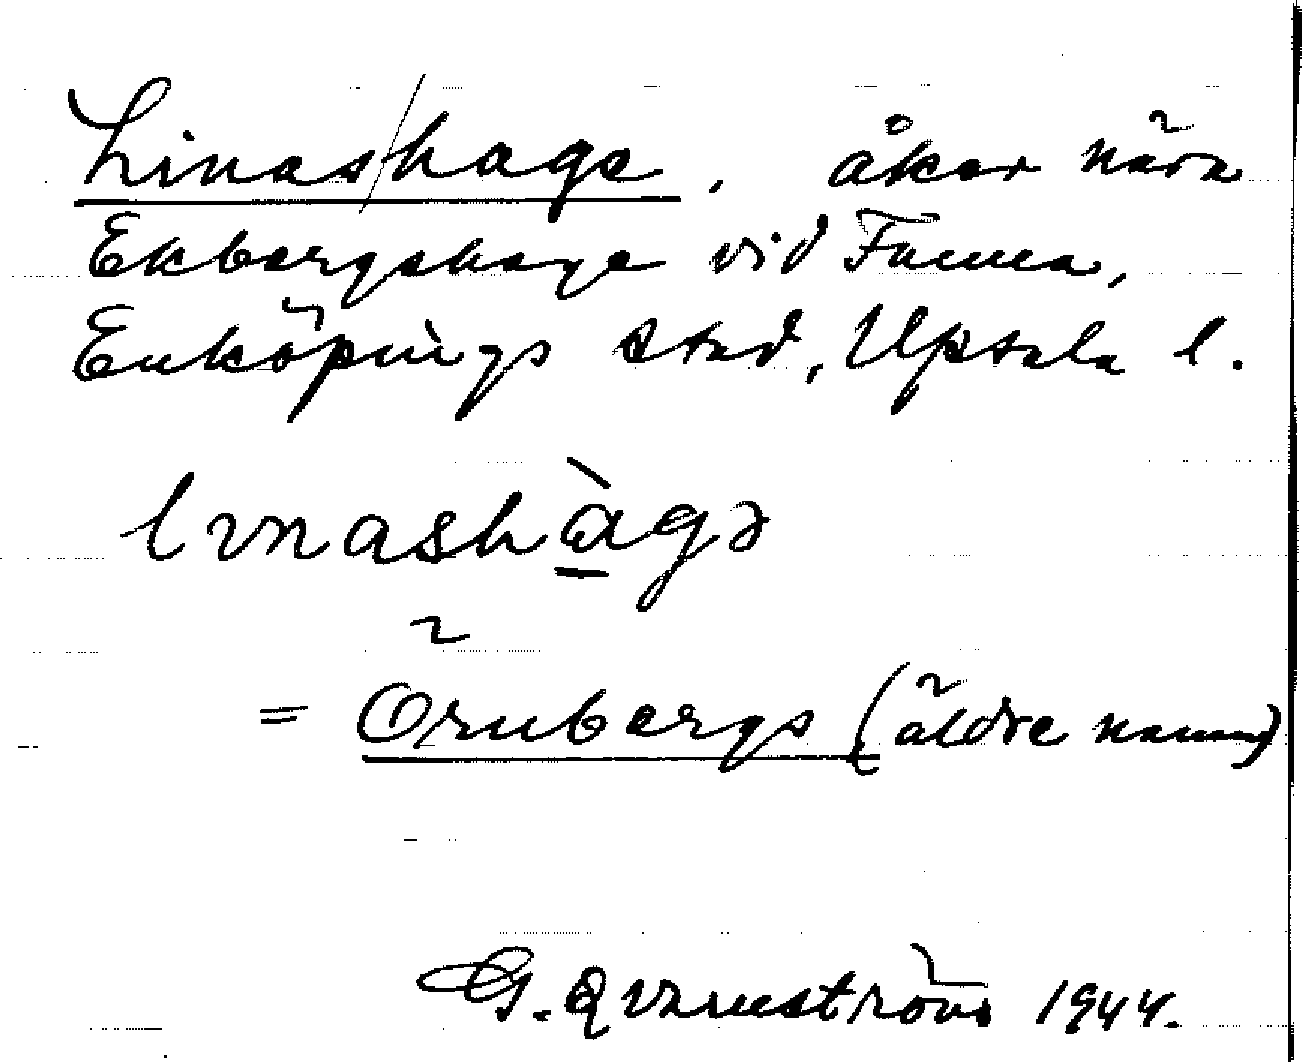 Linas/hage, åker nära
Ekbergshage vid Fanna,
Enköpings stad, Uppsala l.
linashàgə
= Örnbergs (äldre namn)
G. Qvarnström 1944.